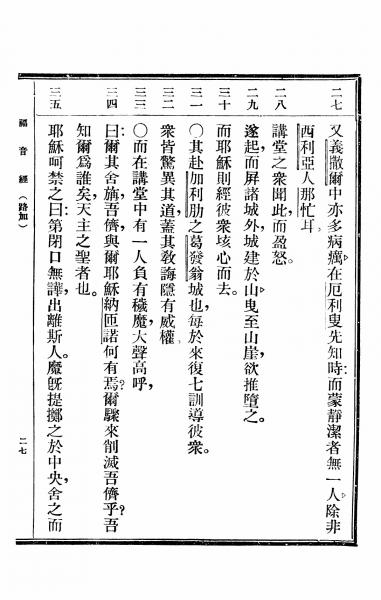 二七 又義撒爾中亦多病癘在厄利叟先知時而蒙靜潔者無一人除非
西利亞人那忙耳
二八 講堂之衆聞此而盈怒。
二九 遂起而屏諸城外城建於山曳至山崖欲推墮之。
三十 而耶穌則經彼衆垓心而去。
三一 〇其赴加利肋之葛發翁城也每於來復七訓導彼衆。
三二 衆皆驚異其道蓋其敎誨隱有威權
三三 〇而在講堂中有一人負有穢魔大聲高呼,
三四 曰爾其舍旃吾儕與爾耶穌納匝諾何有焉?爾驟來削滅吾儕乎?吾
知爾爲誰矣天主之聖者也。
三五 耶穌呵禁之曰第閉口無譁,出離斯人。魔旣提擲之於中央,舍之而
福音經(路加)
二七